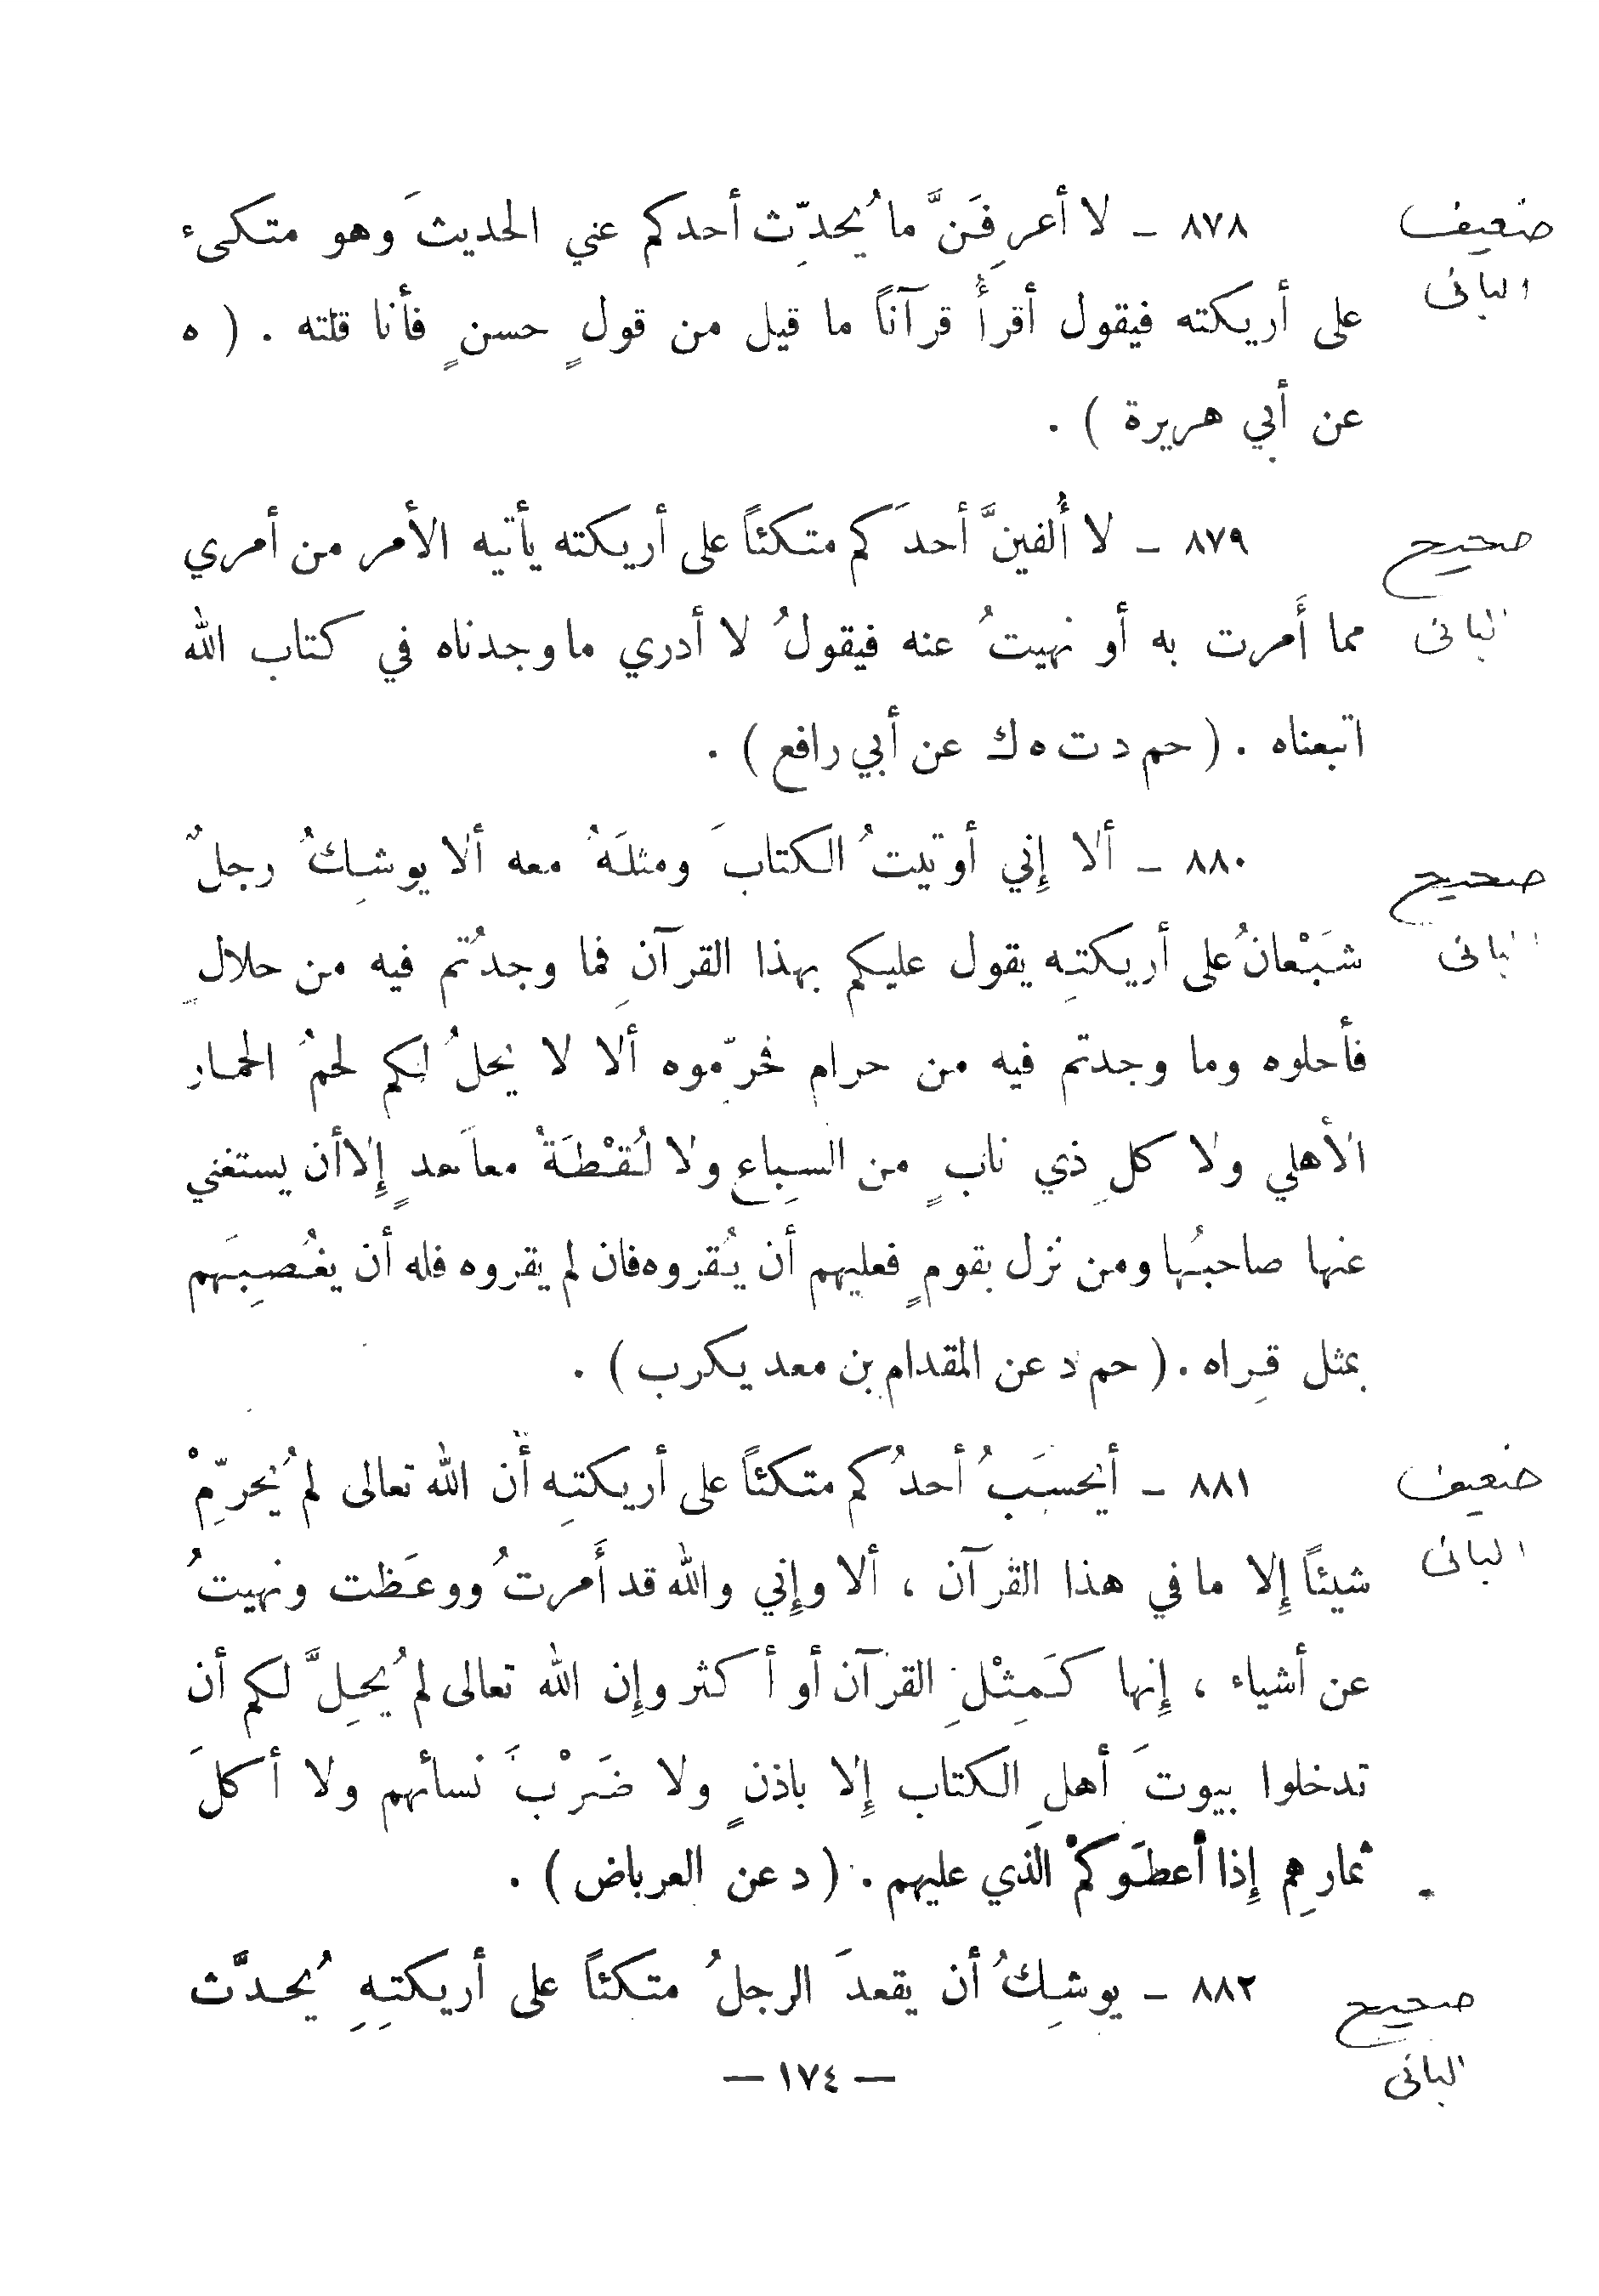 ضعيف
البانى
٨٧٨ - لا أعرِفَنَّ ما يُحدِّث أحدكم عني الحديثَ وهو متكىء
على أريكته فيقول أقرأُ قرآناً ما قيل من قولٍ حسنٍ فأنا قلته . ( ه
عن أبي هريرة ) .
صحيح
البانى
٨٧٩ - لا أُلفينَّ أحدَكم متكئاً على أريكته يأتيه الأمر من أمري
مما أَمرت به أو نهيتُ عنه فيقولُ لا أدري ما وجدناه في كتاب الله
اتبعناه . ( حم د ت ه ك عن أبي رافع ) .
صحيح
البانى
٨٨٠ - ألا إِني أوتيتُ الكتابَ ومثلَهُ معه ألا يوشِكُ رجلٌ
شَبْعانُ على أريكتِه يقول عليكم بهذا القرآنِ فما وجدتُم فيه من حلالٍ
فأحلوه وما وجدتم فيه من حرام فحرِّموه ألا لا يحلُ لكم لحمُ الحمار
الأهلي ولا كلِ ذي نابٍ من السِباع ولا لُقْطَةُ معاَهدٍ إِلا أن يستغني
عنها صاحبُها ومن نزل بقومٍ فعليهم أن يُقروه فان لم يقروه فله أن يغُصِبَهم
بمثل قِراه . ( حم د عن المقدام بن معد يكرب ) .
ضعيف
البانى
٨٨١ - أيحسَبُ أحدُكم متكئاً على أريكتِه أن الله تعالى لم يُحرِّمْ
شيئاً إِلا ما في هذا القرآن ، ألا وإِني والله قد أَمرتُ ووعَظت ونهيتُ
عن أشياء ، إِنها كَمِثْلِ القرآن أو أكثر وإِن الله تعالى لم يُحِلَّ لكم أن
تدخلوا بيوتَ أهلِ الكتاب إِلا باذنٍ ولا ضَرْبَ نسائهم ولا أكلَ
ثمارِهم إِذا أعطَوكمْ الذي عليهم . ( د عن العرباض ) .
صحيح
البانى
٨٨٢ - يوشِكُ أن يقعدَ الرجلُ متكئاً على أريكتِهِ يُحدَّث
— ١٧٤ —